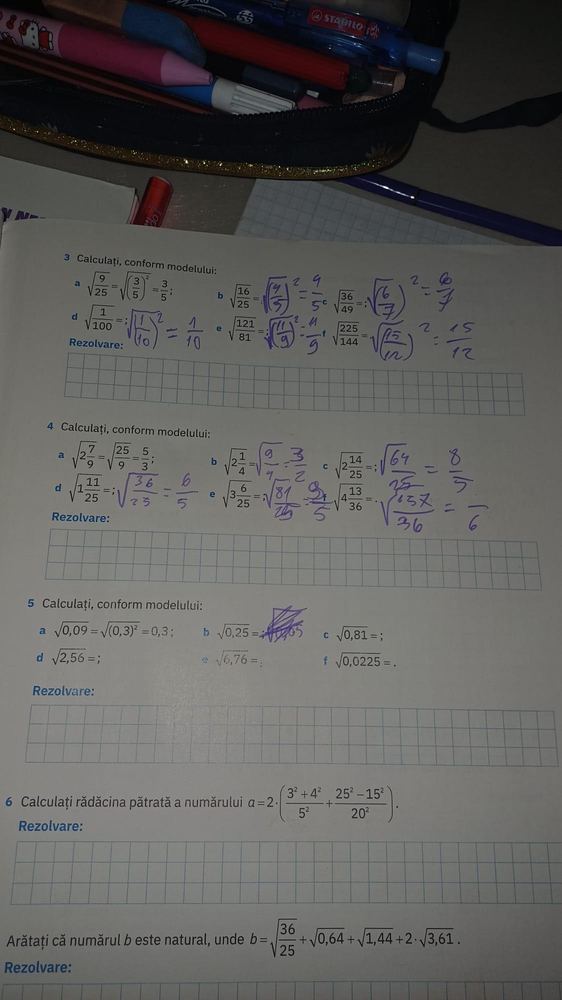 STABILO
3 Calculați, conform modelului:
a √(9/25) = √((3/5)²) = 3/5; b √(16/25) = √(4/5)² = 4/5 c √(36/49) = ; √(6/7)² = 6/7
d √(1/100) = ; √(1/10)² = 1/10 e √(121/81) = ; √(11/9)² = 11/9 f √(225/144) = √(15/12)² = 15/12
Rezolvare:
4 Calculați, conform modelului:
a √(2 7/9) = √(25/9) = 5/3; b √(2 1/4) = √(9/4) = 3/2 c √(2 14/25) = ; √(64/25) = 8/5
d √(1 11/25) = ; √(36/25) = 6/5 e √(3 6/25) = ; √(81/25) = 9/5 √(4 13/36) = . √(157/36) = /6
Rezolvare:
5 Calculați, conform modelului:
a √0,09 = √(0,3)² = 0,3; b √0,25 = ; c √0,81 = ;
d √2,56 = ; e √6,76 = ; f √0,0225 = .
Rezolvare:
6 Calculați rădăcina pătrată a numărului a = 2 · ((3² + 4²)/5² + (25² – 15²)/20²).
Rezolvare:
Arătați că numărul b este natural, unde b = √(36/25) + √0,64 + √1,44 + 2 · √3,61 .
Rezolvare: